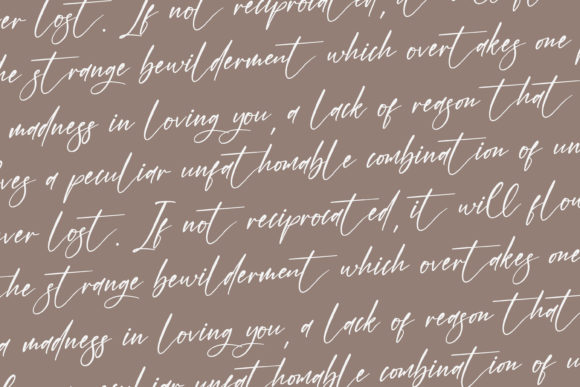 ver lost. If not reciprocated, it will fl
he strange bewilderment which overtakes one
madness in loving you, a lack of reason that
ves a peculiar unfathomable combination of un
ver lost. If not reciprocated, it will flow
the strange bewilderment which overtakes one
a madness in loving you, a lack of reason that
peculiar unfathomable combination of u